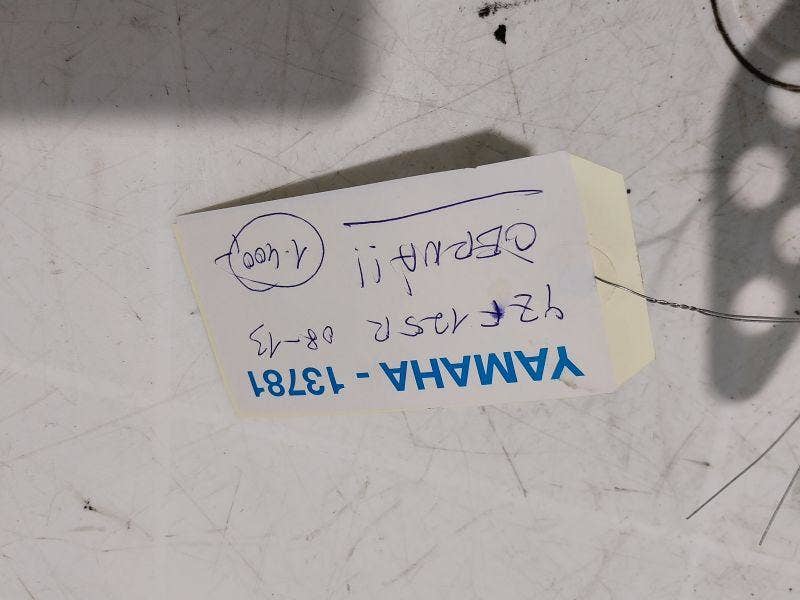 YAMAHA - 13781
YZF 125 R 08-13
ČERNÁ!! 1.400,-